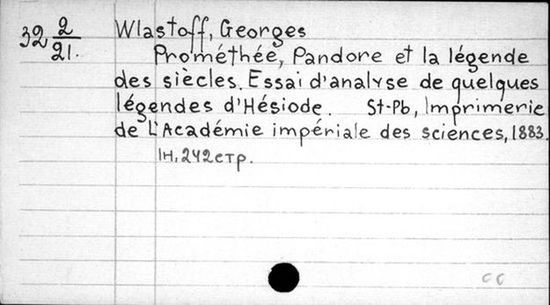 32 2/21. Wlastoff, Georges
Prométhée, Pandore et la légende
des siècles. Essai d'analyse de quelques
légendes d'Hésiode. St-Pb, Imprimerie
de L'Académie impériale des sciences, 1883.
1н, 242стр.
сс